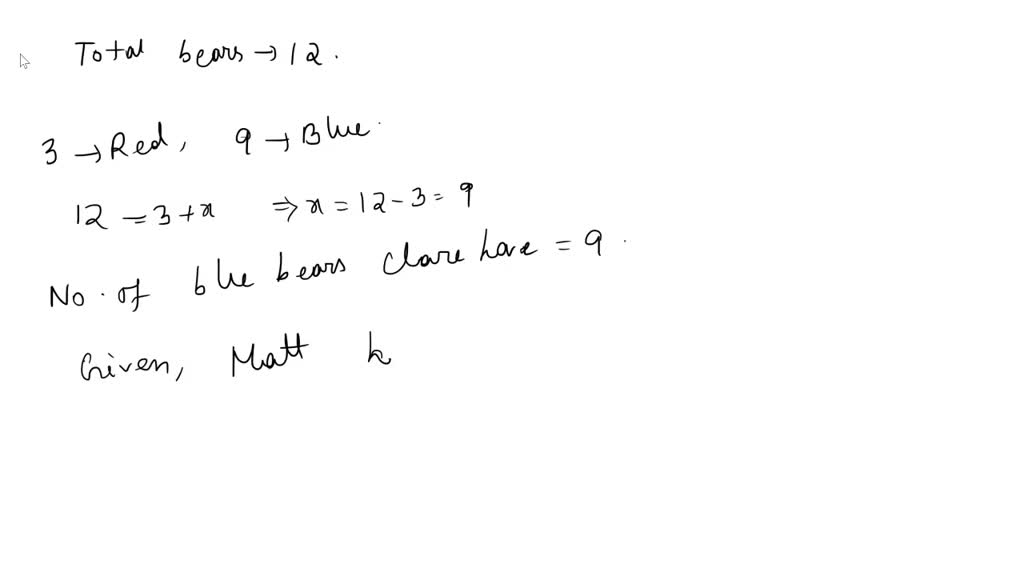 Total bears → 12.
3 → Red, 9 → Blue.
12 = 3 + x ⇒ x = 12 - 3 = 9
No. of blue bears clare have = 9.
Given, Matt h